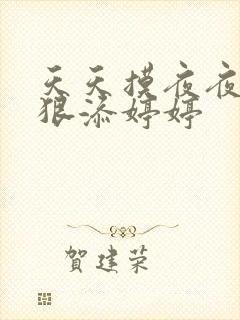 天天摸夜夜
狠添婷婷
贺建荣